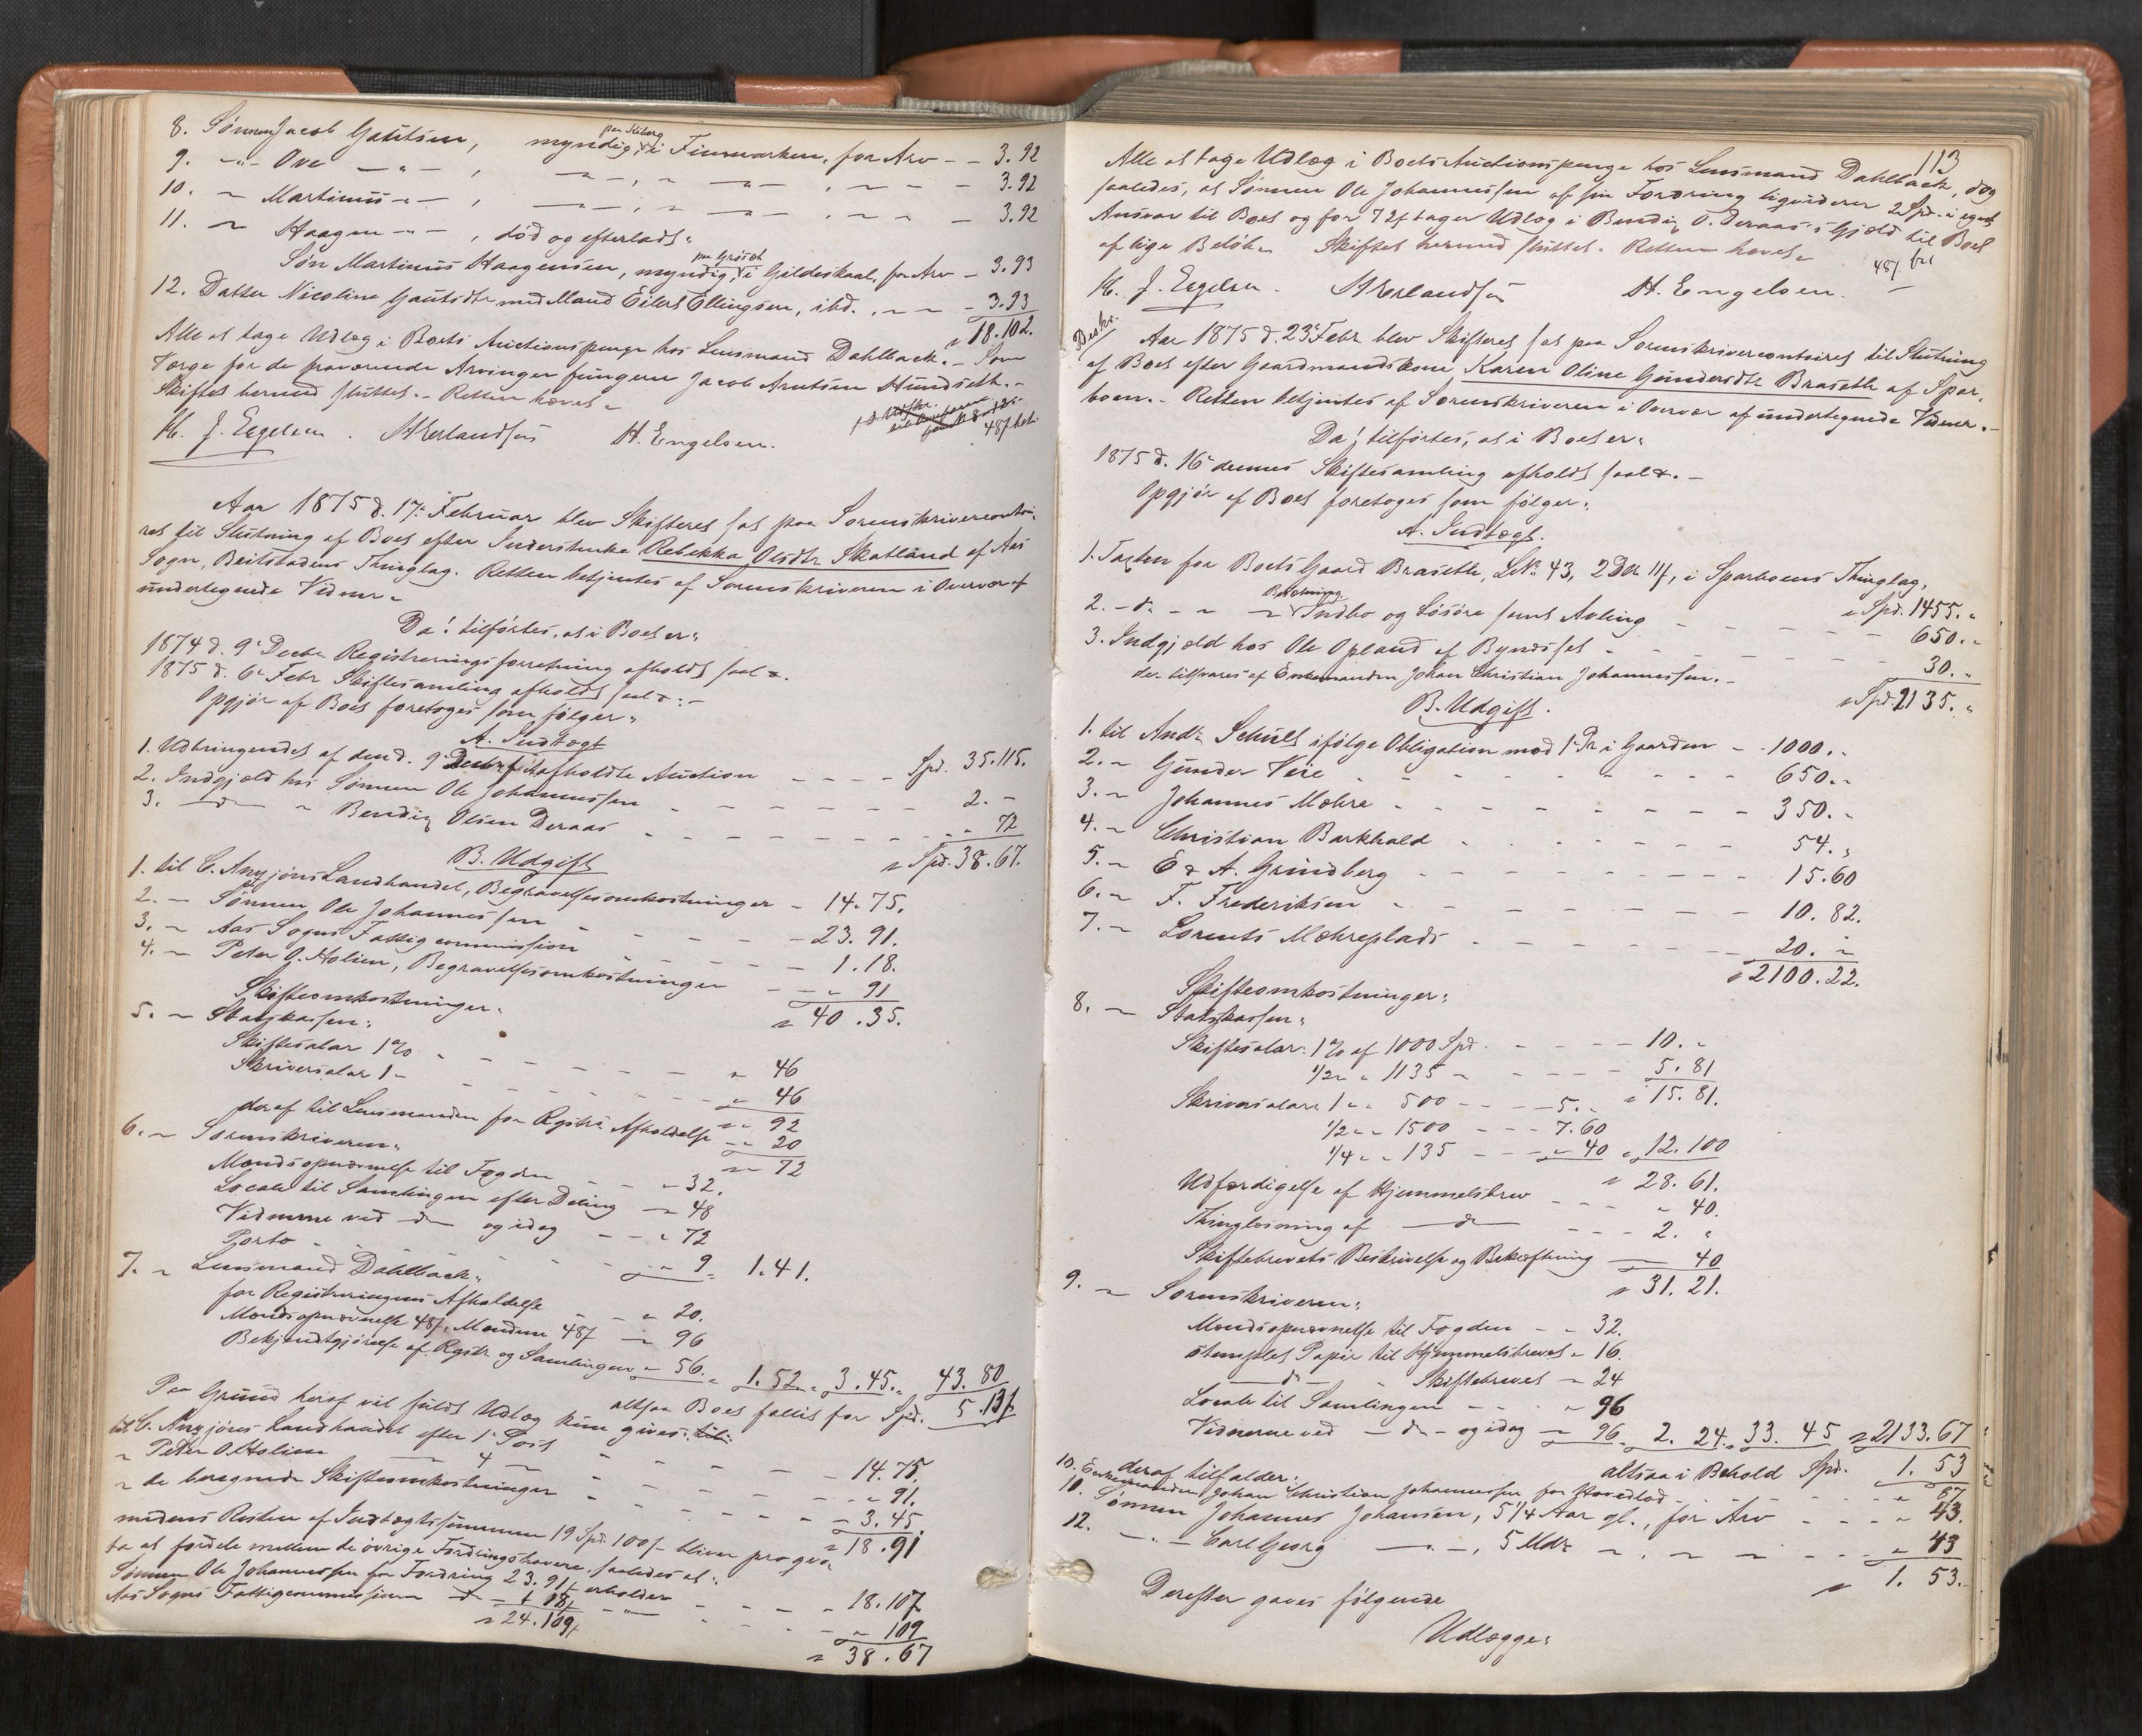 8. Sønnen Jacob Gautsen, myndig, paa Kiberg i Finmarken, for Arv - - 3.92
9. -"- Ove -"-, -"-, " -"-, " - - 3.92
10. " Martinus -"-, -"-, " -"-, " - - 3.92
11. " Haagen -"-, død og efterladt:
Søn Martinus Haagensen, myndig, i Gildeskaal, for Arv - 3.93
12. Datter Nicoline Gautsdtr med Mand Eilert Ellingsen, ibd., " - - 3.93
" 18.102.
Alle at tage Udlæg i Boets Auctionspenge hos Lensmand Dahlback. - Som
Værge for de fraværende Arvinger fungerer Jacob Arntsen Hundseth. -
Skiftet hermed sluttet. - Retten hævet.
48 f bet.
H. J. Eegelsen. A Erlandsen H. Engelsen.
Aar 1875 d. 17de Februar blev Skifteret sat paa Sorenskrivercontoi-
ret til Slutning af Boet efter Inderstenke Rebekka Olsdtr Skatland af Aas
Sogn, Beitstadens Thinglag. Retten betjentes af Sorenskriveren i Overvær af
undertegnede Vidner.
Da! tilførtes, at i Boet er:
1874 d. 9de Decbr Registreringsforretning afholdt saal.
1875 d. 6te Febr Skiftesamling afholdt saal.: -
Opgjør af Boet foretoges som følger:
A. Indtægt
1. Udbringendet af den d. 9de Decbr f. A. afholdte Auction - - - - Spd. 35.115.
2. Indgjæld hos Sønnen Ole Johannessen - - - - - - 2. -
3. -do- " Bendix Olsen Deraas - - - - - - - " 72
" Spd. 38.67.
B. Udgift
1. til C. Anzjøns Landhandel, Begravelsesomkostninger - 14.75.
2. - Sønnen Ole Johannessen - - - - - 23.91.
3. - Aas Sogns Fattigcommission - - - - - 1.18.
4. - Peter O. Holien, Begravelsesomkostninger - - " 91
" 40.35.
Skifteomkostninger:
5. - Statskassen:
Skiftesalar 1% - - - - - - " 46
Skriversalar 1 - - - - - - - " 46
" " 92
deraf til Lensmanden for Regstr. Afholdelse " " 20
" " 72
6. - Sorenskriveren:
Mændsopnævnelse til Fogden - - " 32.
Locale til Samlingen efter Deling - " 48
Vidnerne ved -do- og idag - - " 72
Porto - - - - - - " 9 " 1.41.
7. - Lensmand Dahlback:
for Registreringens Afholdelse - - " 20.
Mændsopnævnelse 48 f, Mændene 48 f - " 96
Bekjendtgjørelse af Regstr. og Samlingen " 56. " 1.52. " 3.45. " 43.80
altsaa Boet fallit for Spd. 5.13 f
Paa Grund heraf vil fuldt Udlæg kun gives til:
til C. Anzjøns Landhandel efter 1ste Post - - - - - 14.75.
" Peter O. Holien -"- 4 -"- - - - - " 91.
" de beregnede Skifteomkostninger - - - - - 3.45.
" 18.91
medens Resten af Indtægtssummen 19 Spd. 100 f - bliver pro qvo-
ta at fordele mellem de øvrige Fordringshavere saaledes at:
Sønnen Ole Johannessen for Fordring 23.91 f erholder - - - - - 18.107.
Aas Sogns Fattigcommission -do- 1.18 f -"- - - - - " 109
" 24.109 f
" 38.67
113
Alle at tage Udlæg i Boets Auctionspenge hos Lensmand Dahlback, dog
saaledes, at Sønnen Ole Johannessen af sin Fordring liqviderer 2 Spd. i eget
Ansvar til Boet og for 72 f tager Udlæg i Bendix O. Deraas's Gjæld til Boet
af lige Beløb. Skiftet hermed sluttet. Retten hævet.
48 f bet
H. J. Eegelsen. A Erlandsen H. Engelsen.
Beskr.
Aar 1875 d. 23de Febr blev Skifteret sat paa Sorenskrivercontoiret til Slutning
af Boet efter Gaardmandskone Karen Oline Gundersdtr Braseth af Spar-
boen. - Retten betjentes af Sorenskriveren i Overvær af undertegnede Vidner. -
Da! tilførtes, at i Boet er:
1875 d. 16de dennes Skiftesamling afholdt saal. -
Opgjør af Boet foretoges som følger:
A. Indtægt.
1. Taxten for Boets Gaard Braseth, L.No 43, 2 Dlr 11 f, i Sparboens Thinglag, " Spd. 1455. "
2. - do - " " Besætning Indbo og Løsøre samt Avling - - - - - - 650. "
3. Indgjæld hos Ole Opland af Byneset - - - - - - - 30. "
der tilsvares af Enkemanden Johan Christian Johannessen. -
" Spd. 2135. "
B. Udgift.
1. til Andr. Schult ifølge Obligation med 1ste Pr. i Gaarden - - 1000. "
2. - Gunder Veie - - - - - - - 650. "
3. - Johannes Mæhre - - - - - - - 350. "
4. - Christian Barkhald - - - - - - 54. "
5. - E & A. Grundberg - - - - - - - 15.60
6. - F. Frederiksen - - - - - - - 10.82.
7. - Lorents Mæhreplads - - - - - - 20. "
" 2100.22.
Skifteomkostninger:
8. - Statskassen:
Skiftesalar: 1% af 1000 Spd. - - - - 10. "
1/2 " " 1135 " - - - - 5.81
" 15.81.
Skriversalar: 1 " " 500 - - - 5. "
1/2 " " 1500 - - - 7.60
1/4 " " 135 - - - " 40 " 12.100
" 28.61.
Udfærdigelse af Hjemmelsbrev - - - " 40.
Thinglæsning af -do- - - - 2. "
Skiftebrevets Beskrivelse og Bekræftning - " 40
" 31.21.
9. - Sorenskriveren:
Mændsopnævnelse til Fogden - - " 32.
stemplet Papir til Hjemmelsbrevet " 16.
-do- " Skiftebrevet - " 24
Locale til Samlingen - - - " 96
Vidnerne ved -do- og idag " 96 " 2.24. " 33.45 " 2133.67
altsaa i Behold Spd. 1.53
deraf tilfalder:
10. Enkemanden Johan Christian Johannessen for Hovedlod - - - - " 67
10. Sønnen Johannes Johansen, 5 1/4 Aar gl., for Arv - - - - " 43.
12. -"- Carl Georg -"-, 5 Mdr " , " - - - " 43
" 1.53.
Derefter gaves følgende
Udlægge: